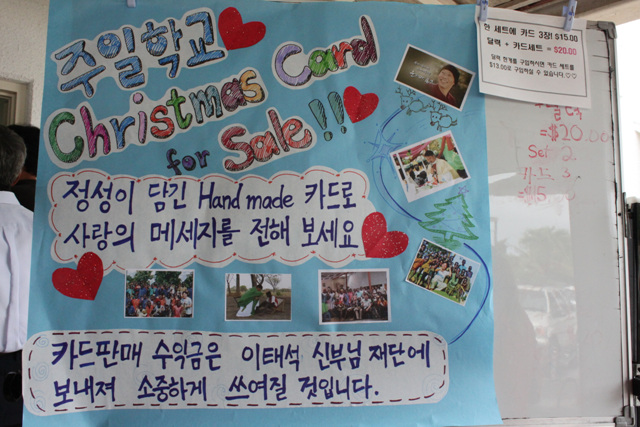 주일학교
Christmas Card
for Sale!!
정성이 담긴 Hand made 카드로
사랑의 메세지를 전해 보세요
카드판매 수익금은 이태석 신부님 재단에
보내져 소중하게 쓰여질 것입니다.
한 세트에 카드 3장! $15.00
달력 + 카드세트 = $20.00
달력 한개를 구입하시면 카드 세트를
$13.00로 구입하실 수 있습니다♡♡
=$20.00
Set 2